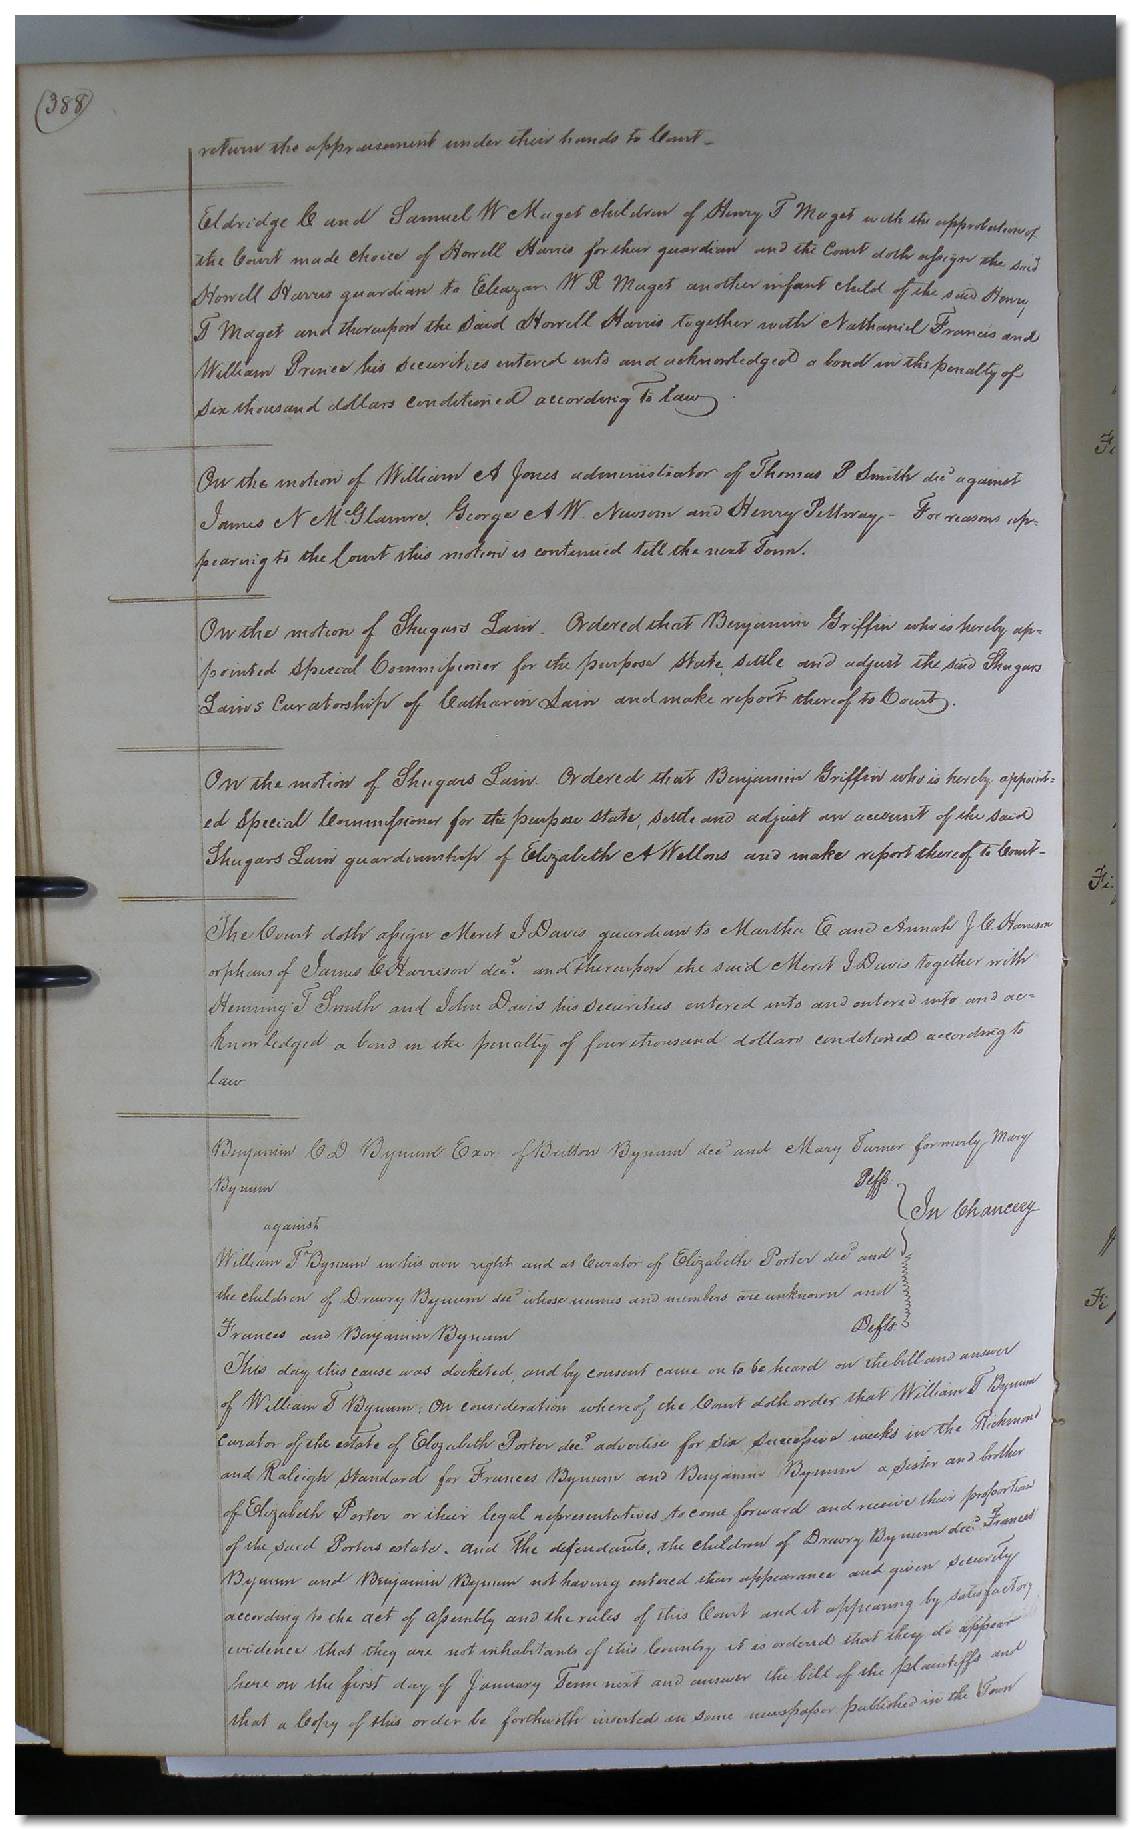 (388)
return the appraisement under their hands to Court -
Eldridge C and Samuel W Maget children of Henry T Maget with the approbation of
the Court made choice of Howell Harris for their guardian and the Court doth assign the said
Howell Harris guardian to Eleazar W R Maget another infant child of the said Henry
T Maget and thereupon the said Howell Harris together with Nathaniel Francis and
William Prince his securities entered into and acknowledged a bond in the penalty of
six thousand dollars conditioned according to law.
On the motion of William A Jones administrator of Thomas P Smith decd against
James N McGlamre, George A W. Newsom and Henry Pettway - For reasons ap=
pearing to the Court this motion is continued till the next Term.
On the motion of Shugars Lain. Ordered that Benjamin Griffin who is hereby ap=
pointed special Commissioner for the purpose state, settle and adjust the said Shugars
Lains Curatorship of Catharin Lain and make report thereof to Court.
On the motion of Shugars Lain. Ordered that Benjamin Griffin who is hereby appoint=
ed special Commissioner for the purpose state, settle and adjust an account of the said
Shugars Lain guardianship of Elizabeth A Wellons and make report thereof to Court-
The Court doth assign Merit J Davis guardian to Martha E and Annah J. C. Harrison
orphans of James C Harrison decd. and thereupon the said Merit J Davis together with
Henning T Smith and John Davis his securities entered into and entered into and ac=
knowledged a bond in the penalty of four thousand dollars conditioned according to
law
Benjamin C D Bynum Exor of Britton Bynum decd and Mary Turner formerly Mary
Bynum Plffs
against In Chancery
William T Bynum in his own right and as Curator of Elizabeth Porter decd and
the children of Drewry Bynum decd whose names and members are unknown and
Frances and Benjamin Bynum Defts
This day this cause was docketed, and by consent came on to be heard on the bill and answer
of William T Bynum. On consideration whereof the Court doth order that William T Bynum
curator of the estate of Elizabeth Porter decd advertise for six successive weeks in the Richmond
and Raleigh Standard for Frances Bynum and Benjamin Bynum a sister and brother
of Elizabeth Porter or their legal representatives to come forward and receive their proportion
of the said Porters estate. and the defendants, the children of Drewry Bynum decd Frances
Bynum and Benjamin Bynum not having entered their appearance and given security
according to the act of assembly and the rules of this Court and it appearing by satisfactory
evidence that they are not inhabitants of this Country it is ordered that they do appear
here on the first day of January Term next and answer the bill of the plaintiffs and
that a Copy of this order be forthwith inserted in some newspaper published in the Town